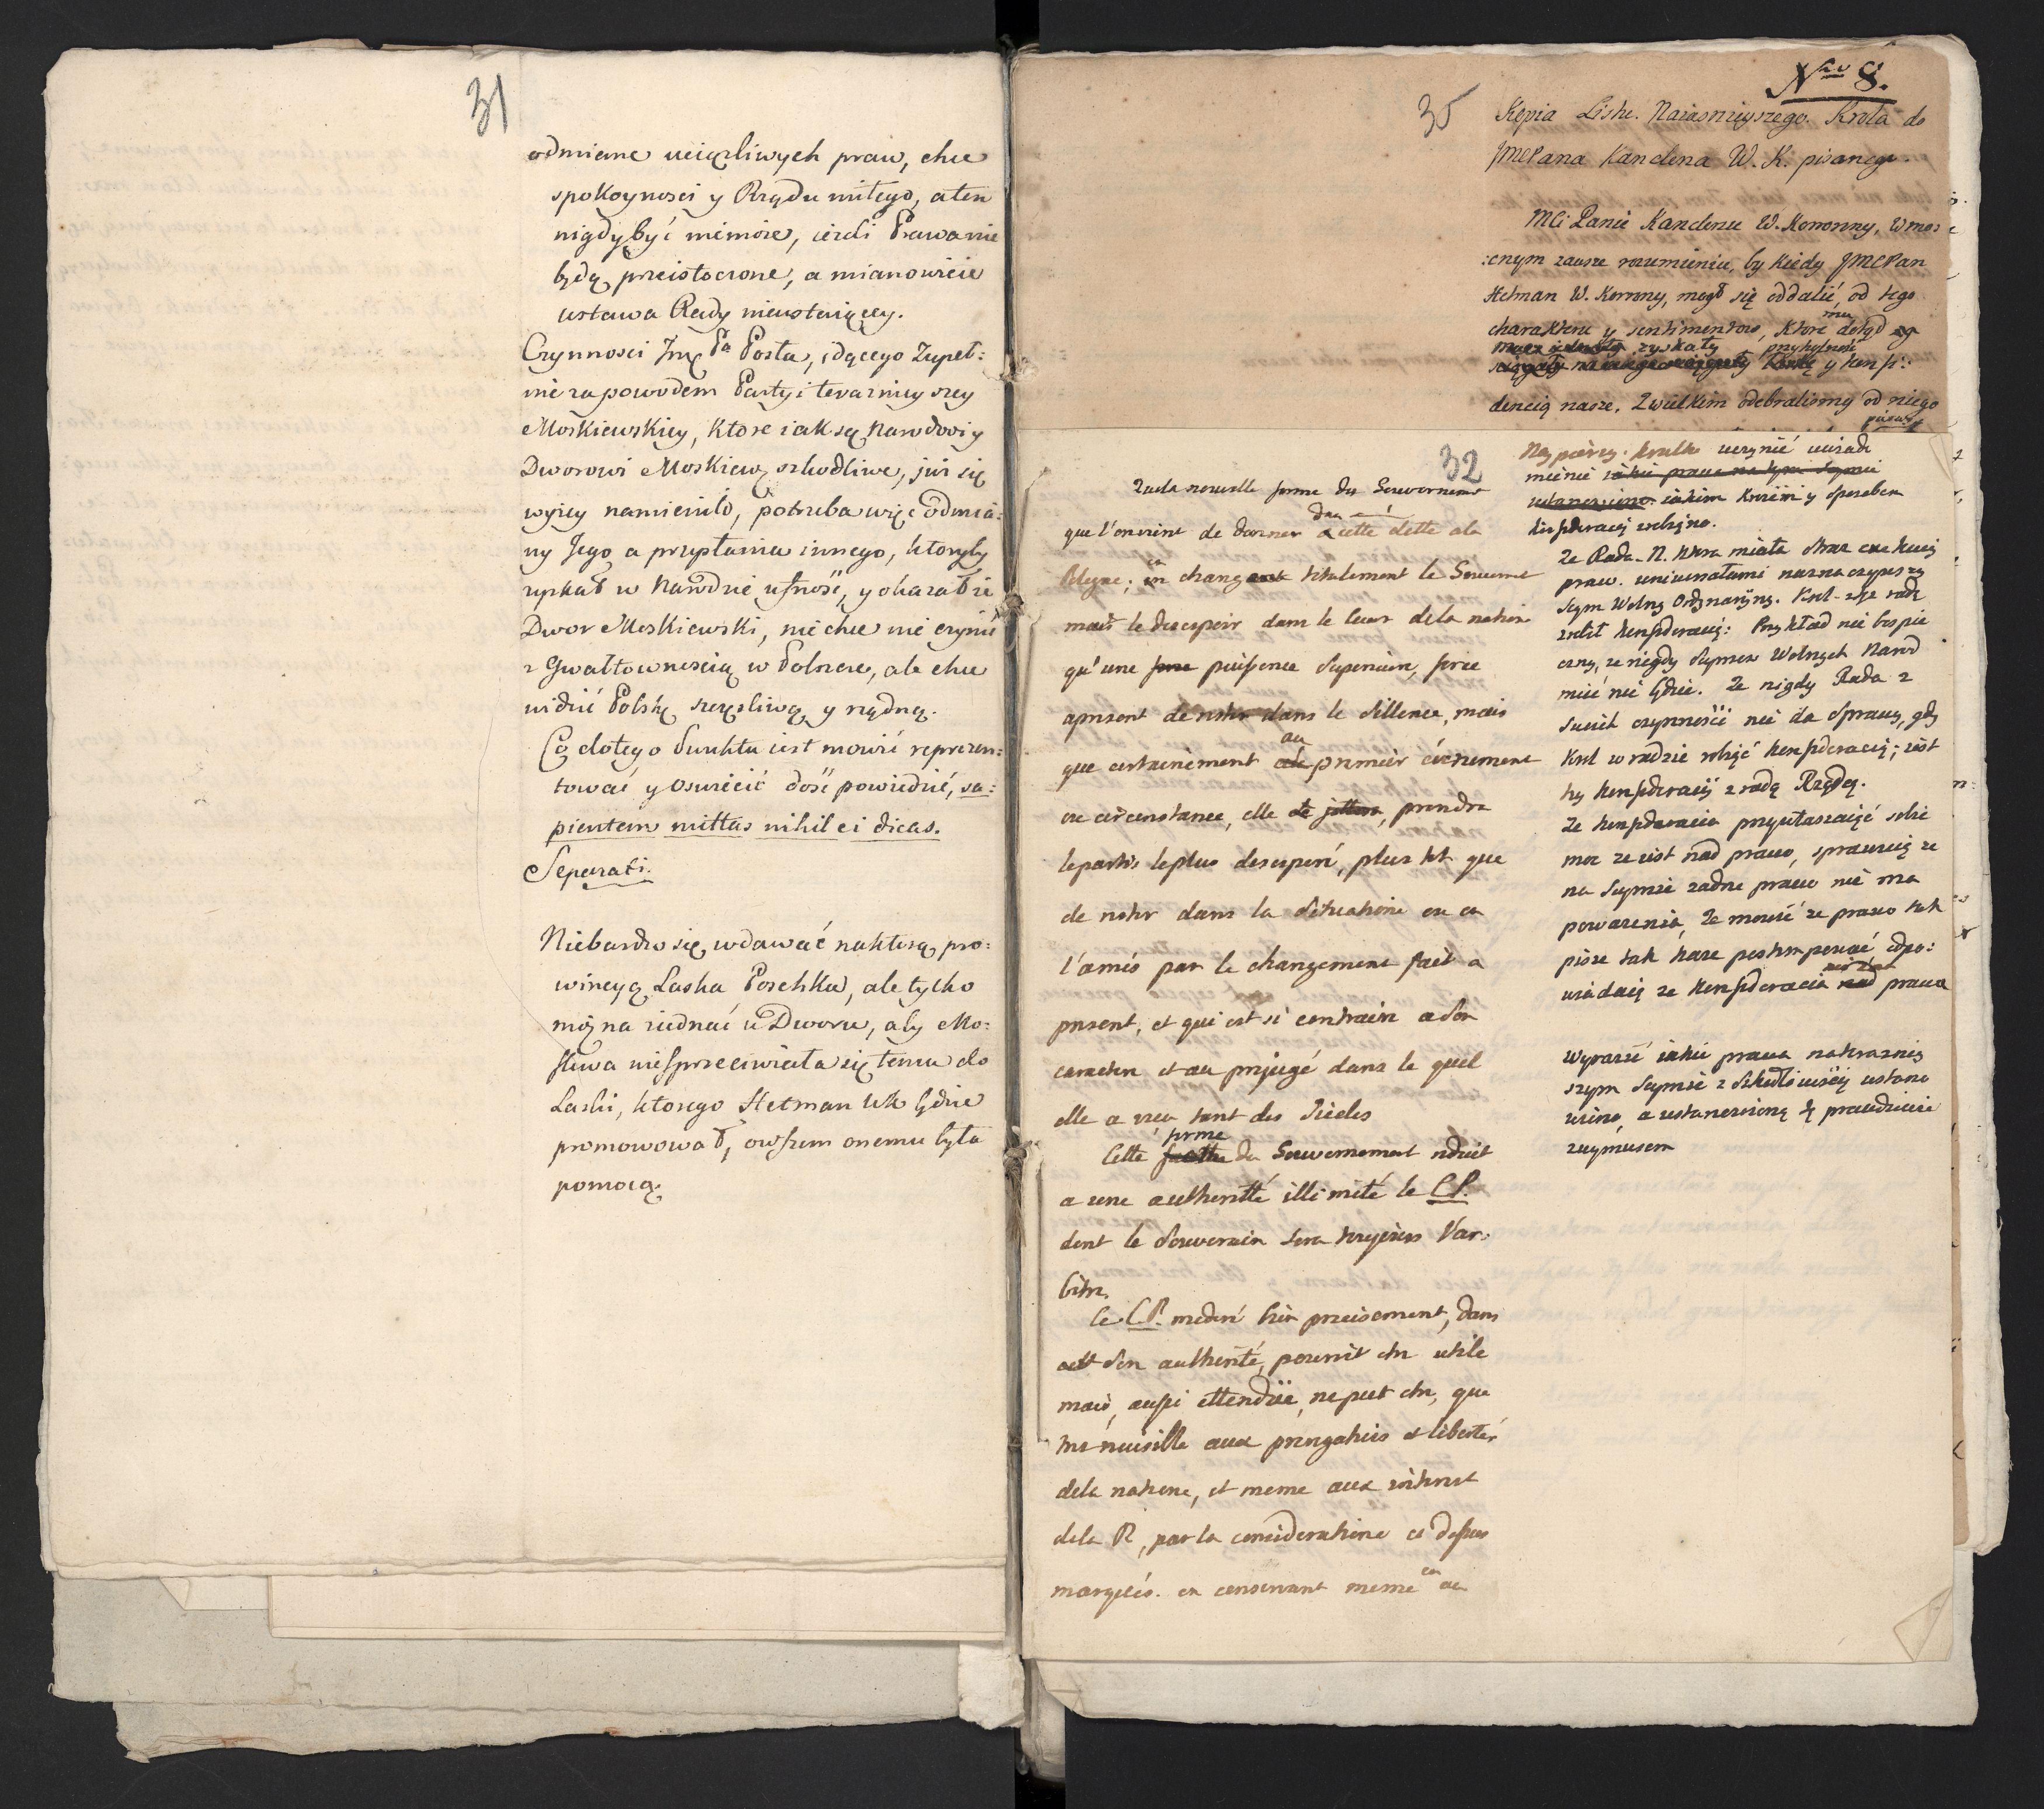 31
odmiane uciązliwych praw, chce
spokoynosci y Rządu miłego, a ten
nigdy być niemoże, ieżeli Prawa nie
będą przeistoczone, a mianowicie
ustawa Rady nieustaiącey.
Czynnosci Jmć Pa Posła, idącego Zupeł:
nie za powodem Partyi terazniey szey
Moskiewskiey, ktore iak są Narodowi y
Dworowi Moskiew: szkodliwe, już się
wyżey namieniło, potrzeba więc odmia:
ny Jego a przysłania innego, ktoryby
zyskał w Narodzie ufność, y okazał że
Dwor Moskiewski, nie chce nic czynić
z Gwałtownoscią w Polszcze, ale chce
widzić Polskę szczęsliwą y rządną.
Co do tego Punktu iest mowić reprezen:
tować y oswiecić dość powiedzić, sa:
pientem mittas nihil ei dicas.
Separati.
Niebardzo się wdawać na ktorą pro:
wincyą Laska Poselska, ale tylko
można ziednać u Dworu, aby Mo:
skwa niesprzeciwiała się temu do
Laski, ktorego Hetman WK będzie
promowował, owszem onemu była
pomocą.
Nro 8.
35
Kopia Listu Naiasnieyszego Krola do
JMCPana Kanclerza W. K. pisanego.
MCi Panie Kanclerzu W. Koronny, W moc
:cnym zawsze rozumieniu, by kiedy JMCPan
Hetman W. Koronny, mogł się oddalić, od tego
charakteru y sentimentow, ktore mu dotąd
zyskały przychylność y konfi:
dencią nasze. Z wielkim odebralismy od niego
32
que l'on vient de donner a cette dette a la
Pologne; en changeant totalement le Gouvernet
mait le desespoir dans le coeur de la nation
qu'une puissence superieure, force
apresent de rester dans le sillence, mais
que certainement au premier évenement
ou circonstance, elle prendra
le partis le plus desesperé, plus tot que
de rester dans la situation ou on
l'a mis par le changement fait a
present, et qui est si contraire a son
caractere et au prejugé dans le quel
elle a vecu tant des siecles
Cette forme du Gouvernement reduit
a une authoritté illimité le CP.
dont le souverain sera toujours l'ar:
bitre.
Le CP. moderé bien precisement, dans
son authorité, pourrit etre utile
mais, aussi ettendüe, ne peut etre, que
tres nuisible aux prerogatives et libertés
de la nation, et meme aux interest
de la R, par la consideration ci dessus
marquées. en conservant meme
Naypierwey krotko uczynić uwiado
mienie
iakim ksztalt y sposobem
konfederacij zrobiono.
Ze Rada N. ktora miała straz exekucij
praw. universałami naznaczywszy
Seym Wolny Ordynaryiny. Krol z tą radą
zrobił konfederacij: Przykład nie bespie
czny, ze nigdy Seymow Wolnych Narod
mieć nie będzie. Ze nigdy Rada z
swoich czynności nie da sprawy, gdy
Krol w radzie robiąć konfederacij; iest
tey konfederacij z radą Rządcą.
Ze konfederacia przywłaszczaiąć sobie
moc ze iest nad prawo, sprawuią ze
na Seymie zadne prawo nie ma
powazenia, Ze mowić ze prawo tak
pisze tak kaze postempować odpo:
wiadaią ze konfederacia nad prawa
wyrazić iakie prawa na teraznie
szym Seymie z szkodliwością ustano
wiono, a ustanowioną tę prawdziwie
zaymusem